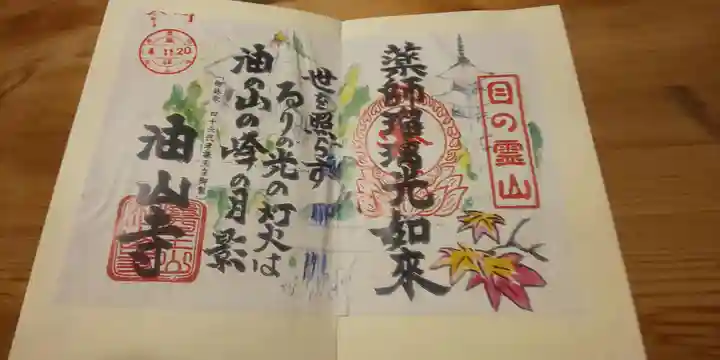 目の霊山
薬師瑠璃光如來
世を照らす
るりの光の灯火は
油の山の峰の月影
油山寺
4 11.20